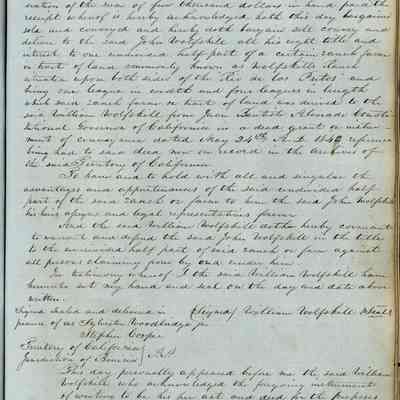 ration of the sum of five thousand dollars in hand paid the
receipt whereof is hereby acknowledged hath this day bargained
sold and conveyed and hereby doth bargain sell convey and
deliver to the said John Wolfskill all his right title and
interest to one undivided half part of a certain ranch farm
or tract of land commonly known as Wolfskills Ranch
situated upon both sides of the "Rio de los Putos" and
being one league in width and four leagues in length
which said ranch farm or tract of land was deeded to the
said William Wolfskill from Juan Bautista Alvarado Consti
tutional Governor of California in a deed grant or instru-
ment of conveyance dated May 24th A.D. 1842 reference
being had to said deed now on record in the archives of
the said Territory of California
To have and to hold with all and singular the
advantages and appurtenances of the said undivided half
part of the said ranch or farm to him the said John Wolfskill
his heirs assigns and legal representatives forever
And the said William Wolfskill doth hereby covenant
to warrant and defend the said John Wolfskill in the title
to the undivided half part of said ranch or farm against
all persons claiming from by and under him
In testimony whereof I the said William Wolfskill have
hereunto set my hand and seal on the day and date above
written
Signed sealed and delivered in (Signed) William Wolfskill (Seal)
presence of us Sylvester Woodbridge jr
Stephen Cooper
Territory of California
Jurisdiction of Benicia
This day personally appeared before me the said William
Wolfskill who acknowledged the foregoing instrument
of writing to be his free act and deed for the purposes